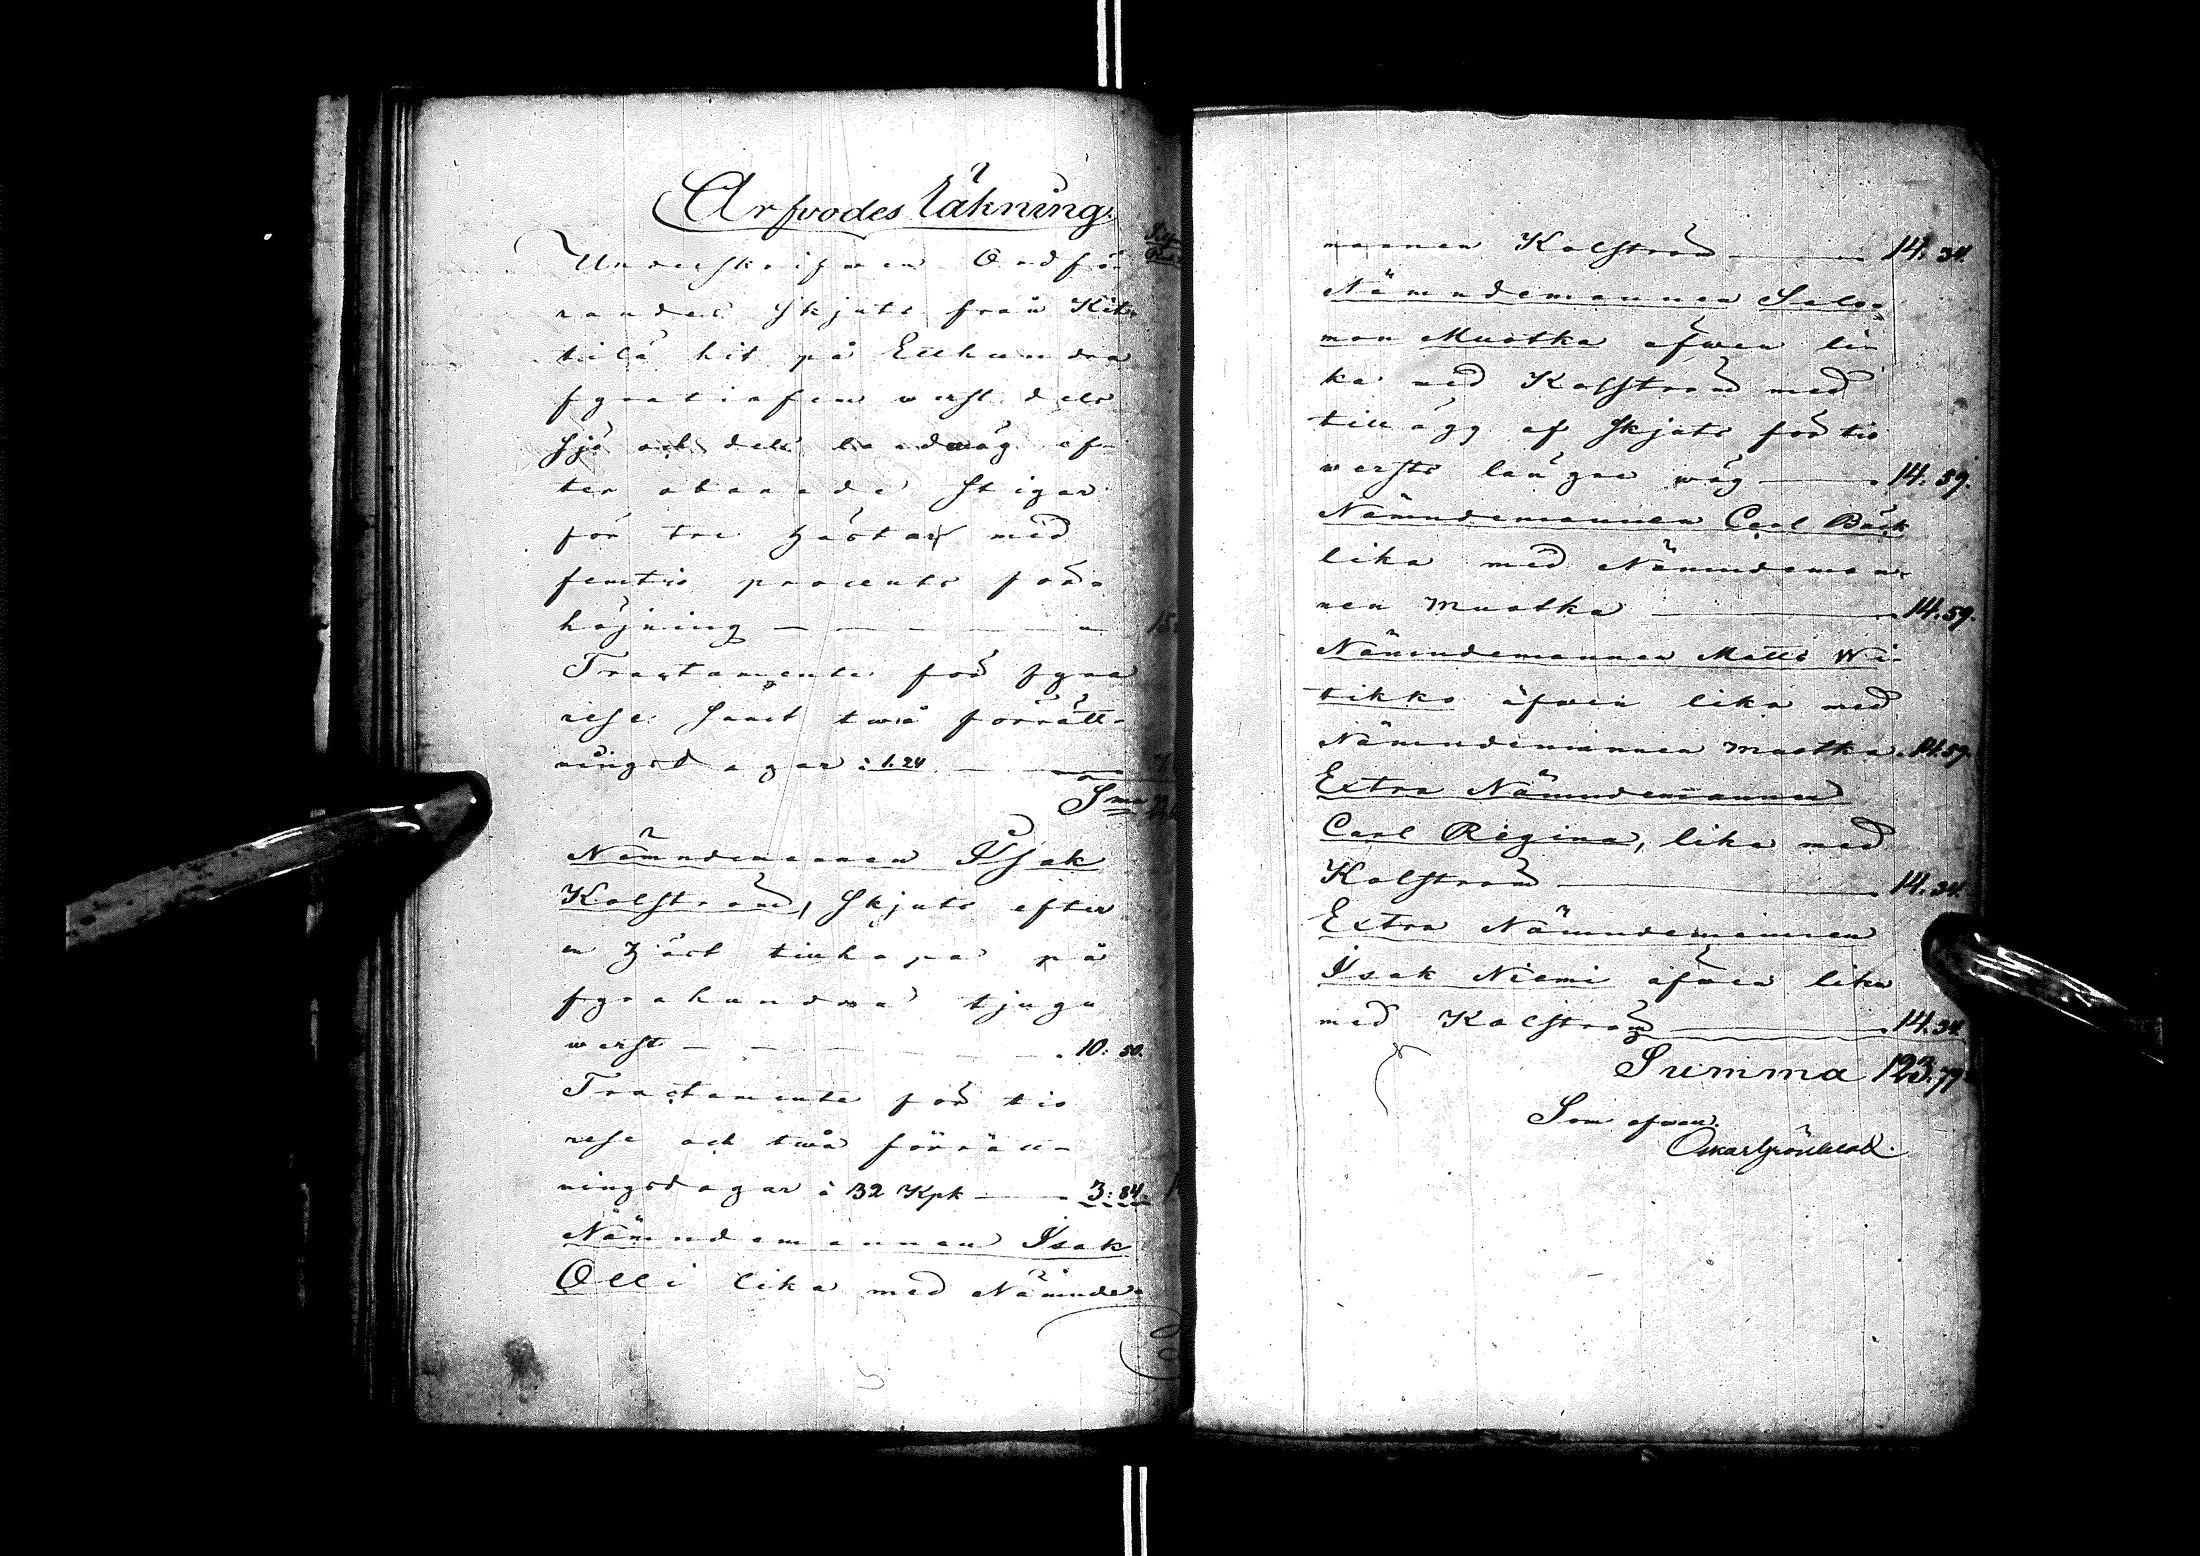 Arfvodes Räkning.
Underskrifwen Ordfö-
randes skjuts från Kit-
tilä hit på Etthundra
fyratiofem werst dels
sjö och dels landwäg ef-
ter obanade stigar
för tre hästar med
femtio procents för-
höjning
Tractamente för fyra
rese samt twå förrätt-
ningsdagar à 1.24
Sma
Nämndemannen Isak
Kolström, skjuts efter
en häst tillhopa på
fyrahundra tjugu
werst 10: 50.
Tractamente för tio
rese och twå förrätt-
ningsdagar à 32 Kpk 3: 84.
Nämndemannen Isak
Olli lika med Nämnde-
mannen Kolström 14. 34.
Nämndemannen Salo-
mon Muotka äfwen li-
ka med Kolström med
tillägg af skjuts för tio
wersts längre wäg 14. 59.
Nämndemannen Carl Bäck
lika med Nämndeman-
nen Muotka 14. 59.
Nämndemannen Matts Wi-
tikko äfwen lika med
Nämndemannen Muotka 14. 59.
Extra Nämndemannen
Carl Regina, lika med
Kolström 14. 34.
Extra Nämndemannen
Isak Niemi äfwen lika
med Kolström 14. 34.
Summa 123. 79
Som ofwan.
Oskar Grönblad.